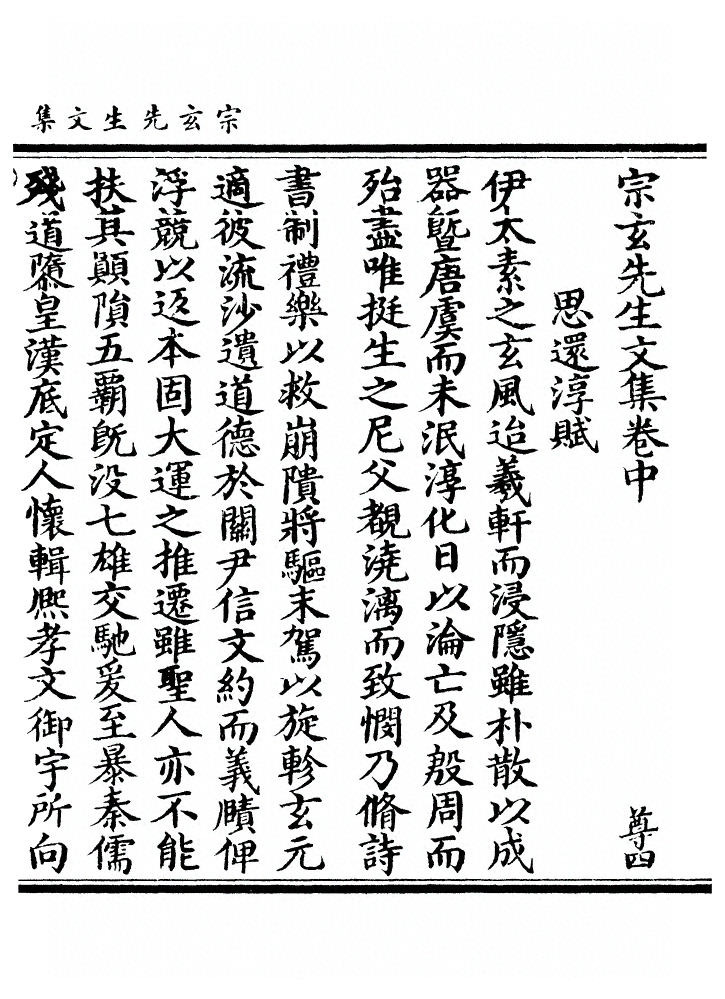 宗玄先生文集
宗玄先生文集卷中 尊四
思還淳賦
伊太素之玄風迨羲軒而浸隱雖朴散以成
器曁唐虞而未泯淳化日以淪亡及殷周而
殆盡唯挺生之尼父覩澆漓而致憫乃脩詩
書制禮樂以救崩隤將驅末駕以旋軫玄元
適彼流沙遺道德於關尹信文約而義賾俾
浮競以返本固大運之推遷雖聖人亦不能
扶其顛隕五霸旣没七雄交馳爰至暴秦儒
殘道隳皇漢底定人懷輯熙孝文御宇所向